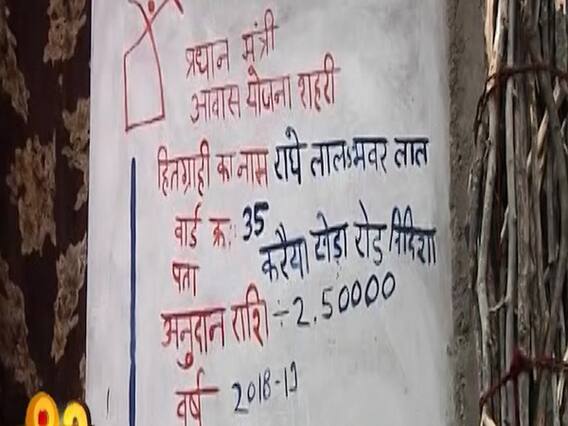 प्रधान मंत्री
आवास योजना शहरी
हितग्राही का नाम राधे लाल भवर लाल
वार्ड क्र: 35
पता करैया खेड़ा रोड़ विदिशा
अनुदान राशि ÷ 2,50000
वर्ष 2018-19